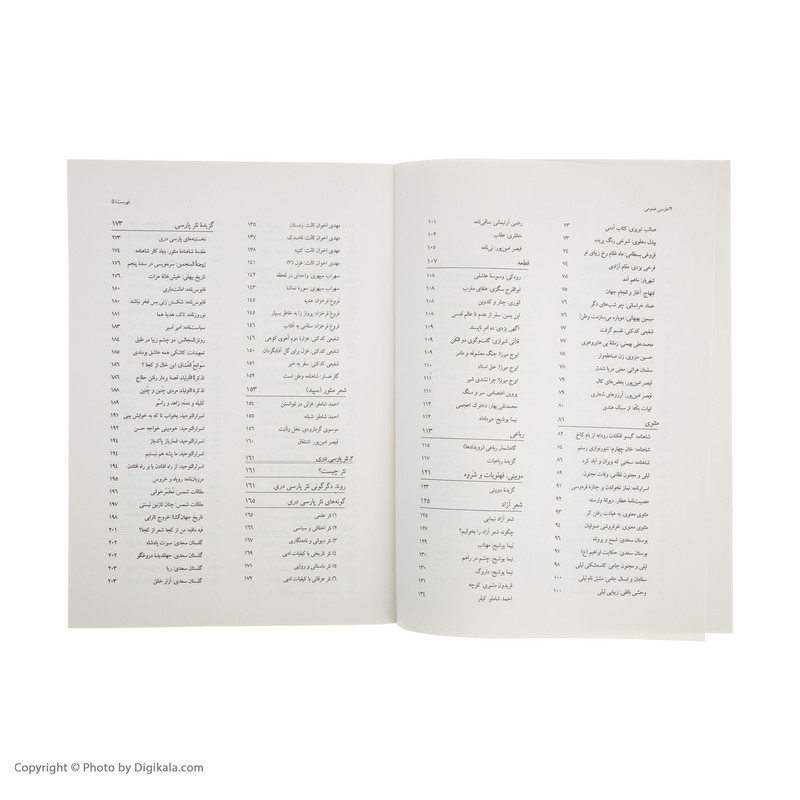 ۴/فارسی عمومی
صائب تبریزی: کتاب آدمی ۷۳
بیدل دهلوی: شوخی رنگ پریده ۷۳
فروغی بسطامی: ماه غلام رخ زیبای تو ۷۴
فرخی یزدی: مقام آزادی ۷۴
شهریار: ماهم آمد ۷۵
ابتهاج: آغاز و انجام جهان ۷۵
عماد خراسانی: چو شب‌های دگر ۷۶
سیمین بهبهانی: دوباره می‌سازمت وطن! ۷۶
شفیعی کدکنی: قسم گرفت ۷۷
محمدعلی بهمنی: زمانهٔ بی‌های‌وهوی ۷۷
حسین منزوی: زن صاعقه‌وار ۷۸
سلمان هراتی: معنی دریا شدن ۷۸
قیصر امین‌پور: بغض‌های کال ۷۹
قیصر امین‌پور: آرزوهای شعاری ۷۹
ابیات یگه: از سبک هندی ۸۰
مثنوی ۸۱
شاهنامه: گیسو افکندن رودابه از بام کاخ ۸۲
شاهنامه: خان چهارم: تنبورنوازی رستم ۸۴
شاهنامه: سخنی که ویران و آباد کرد ۸۶
لیلی و مجنون نظامی: وفات مجنون
اسرارنامه: نماز نخواندن بر جنازهٔ فردوسی
مصیبت‌نامهٔ عطار: دیوانهٔ وارسته
مثنوی معنوی: به عیادت رفتن کر
مثنوی معنوی: خرفروشی صوفیان
بوستان سعدی: شمع و پروانه
بوستان سعدی: حکایت ابراهیم (ع) ۹۷
لیلی و مجنون جامی: کاسه‌شکنی لیلی ۹۸
سلامان و ابسال جامی: مشق نام لیلی ۱۰۰
وحشی بافقی: زیبایی لیلی ۱۰۰
رضی آرتیمانی: ساقی‌نامه ۱۰۱
خانلری: عقاب ۱۰۲
قیصر امین‌پور: نی‌نامه ۱۰۵
قطعه ۱۰۷
رودکی: وسوسهٔ عاشقی ۱۰۸
ابوالفرج سگزی: عنقای مغرب ۱۰۸
انوری: چنار و کدوبن ۱۰۸
ابن یمین: سفر از عدم تا عالم قدس ۱۰۸
آگهی یزدی: ده امر ناپسند ۱۰۹
قاآنی شیرازی: گفت‌وگوی دو الکن ۱۰۹
ایرج میرزا: جنگ معشوقه و مادر ۱۰۹
ایرج میرزا: حق استاد ۱۱۰
ایرج میرزا: چرا نشدی شیر ۱۱۱
پروین اعتصامی: سر و سنگ ۱۱۱
محمدتقی بهار: دخترک اعجمی ۱۱۲
نیما یوشیج: میرداماد ۱۱۲
رباعی ۱۱۳
گاهشمار رباعی (رویدادها) ۱۱۵
گزیدهٔ رباعیات ۱۱۷
دوبیتی، فهلویات و شروه ۱۲۱
گزیدهٔ دوبیتی ۱۲۳
شعر آزاد ۱۲۵
شعر آزاد نیمایی ۱۲۵
چگونه شعر آزاد را بخوانیم؟ ۱۲۷
نیما یوشیج: مهتاب ۱۲۹
نیما یوشیج: چشم در راهم ۱۳۰
نیما یوشیج: داروگ ۱۳۰
فریدون مشیری: کوچه ۱۳۱
احمد شاملو: کیفر ۱۳۴
فهرست/۵
مهدی اخوان ثالث: زمستان ۱۳۵
مهدی اخوان ثالث: قاصدک ۱۳۷
مهدی اخوان ثالث: کتیبه ۱۳۸
مهدی اخوان ثالث: غزل (۳) ۱۴۱
سهراب سپهری: واحه‌ای در لحظه ۱۴۲
سهراب سپهری: سورهٔ تماشا ۱۴۳
فروغ فرخزاد: هدیه ۱۴۵
فروغ فرخزاد: پرواز را به خاطر بسپار ۱۴۵
فروغ فرخزاد: سلامی به آفتاب ۱۴۶
شفیعی کدکنی: هزارهٔ دوم آهوی کوهی ۱۴۶
شفیعی کدکنی: غزل برای گل آفتابگردان ۱۵۰
شفیعی کدکنی: سفر به خیر ۱۵۱
گلرخسار: شاهنامه وطن است ۱۵۲
شعر منثور (سپید) ۱۵۳
احمد شاملو: غزلی در نتوانستن ۱۵۴
احمد شاملو: شبانه ۱۵۵
موسوی گرمارودی: نخل ولایت ۱۵۶
قیصر امین‌پور: اشتقاق ۱۶۰
۲. نثر پارسی دری ۱۶۱
نثر چیست؟ ۱۶۱
روند دگرگونی نثر پارسی دری ۱۶۱
گونه‌های نثر پارسی دری ۱۶۵
۱) نثر علمی ۱۶۵
۲) نثر اخلاقی و سیاسی ۱۶۶
۳) نثر دیوانی و نامه‌نگاری ۱۶۷
۴) نثر تاریخی با کیفیات ادبی ۱۶۹
۵) نثر داستانی و روایی ۱۷۱
۶) نثر عرفانی با کیفیات ادبی ۱۷۲
گزیدهٔ نثر پارسی ۱۷۳
نخستینه‌های پارسی دری ۱۷۳
مقدمهٔ شاهنامهٔ منثور: بنیاد کار شاهنامه ۱۷۴
روضةالمنجمین: سرمنویسی در سدهٔ پنجم ۱۷۶
تاریخ بیهقی: خیش‌خانهٔ هرات ۱۷۶
قابوس‌نامه: امانت‌داری ۱۸۰
قابوس‌نامه: شکستن زنی پس فخر نباشد ۱۸۰
نوروزنامه: تاک، هدیهٔ هما ۱۸۱
سیاست‌نامه: امیر اسیر ۱۸۳
رونق‌المجالس: دو چشم زیبا در طبق ۱۸۴
تمهیدات: کاشکی همه عاشق بودندی ۱۸۵
سوانح العشاق: این خال از کجا؟ ۱۸۶
تذکرةالاولیاء: قصهٔ بردار رفتن حلاج ۱۸۶
تذکرةالاولیاء: مردی چنین و چنین ۱۸۸
کلیله و دمنه: زاهد و راسو ۱۸۹
اسرارالتوحید: بخواب تا که به خوابش بینی ۱۹۱
اسرارالتوحید: خودبینی خواجه حسن ۱۹۲
اسرارالتوحید: قمارباز پاکباز ۱۹۴
اسرارالتوحید: ما پشه هم نیستیم ۱۹۴
اسرارالتوحید: از راه افتادن یا بر راه افتادن ۱۹۴
مرزبان‌نامه: روباه و خروس ۱۹۵
مقالات شمس: محضرخوانی ۱۹۶
مقالات شمس: چنان نازنین نیستی ۱۹۷
تاریخ جهان‌گشا: خروج تارابی ۱۹۸
فیه مافیه: من از کجا شعر از کجا؟ ۲۰۱
گلستان سعدی: سیرت پادشاه ۲۰۲
گلستان سعدی: جهاندیدهٔ دروغگو ۲۰۲
گلستان سعدی: ریا ۲۰۳
گلستان سعدی: آزار خلق ۲۰۳
Copyright © Photo by Digikala.com